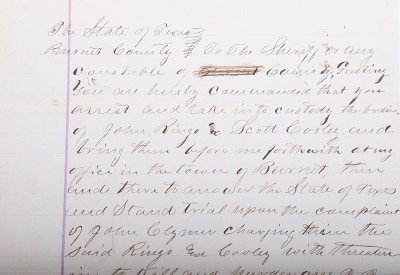 The State of Texas
Burnet County To The Sheriff or any
Constable of said County Greeting
You are hereby commanded that you
arrest and take into custody the bodies
of John Ringo & Scott Cooley and
bring them before me forthwith at my
office in the town of Burnet then
and there to answer the State of Texas
and Stand trial upon the complaint
of John Clymer charging them the
said Ringo and Cooley with threaten
ing to kill and